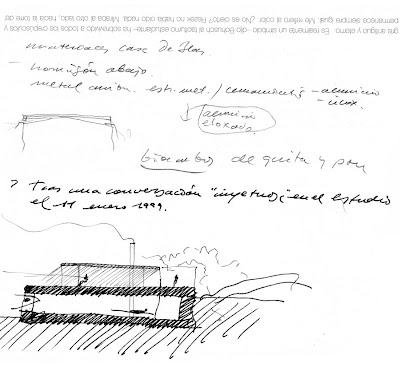 gris antiguo y eterno. Es realmente un símbolo -dijo Bohuslav al facundo estudiante- ha sobrevivido a todos los crepúsculos y
permanece siempre igual. Me refiero al color ¿No es cierto? Plasek no había oído nada. Miraba al otro lado, hacia la torre de
materiales casa de Blas.
- hormigón abajo.
metal estr. met. / - aluminio
- inox.
aluminio
eloxado.
de quita y pon
> Tras una conversación en el estudio
el 11 enero 1999.